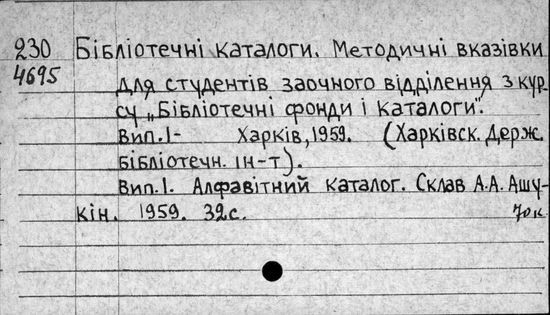 230 Бібліотечні каталоги. Методичні вказівки
4695 для студентів заочного відділення з кур
су „Бібліотечні фонди і каталоги".
Вип.1- Харків, 1959. (Харківск. Держ.
бібліотечн. ін-т).
Вип.1. Алфавітний каталог. Склав А.А. Ашу-
кін. 1959. 32с. 70к.